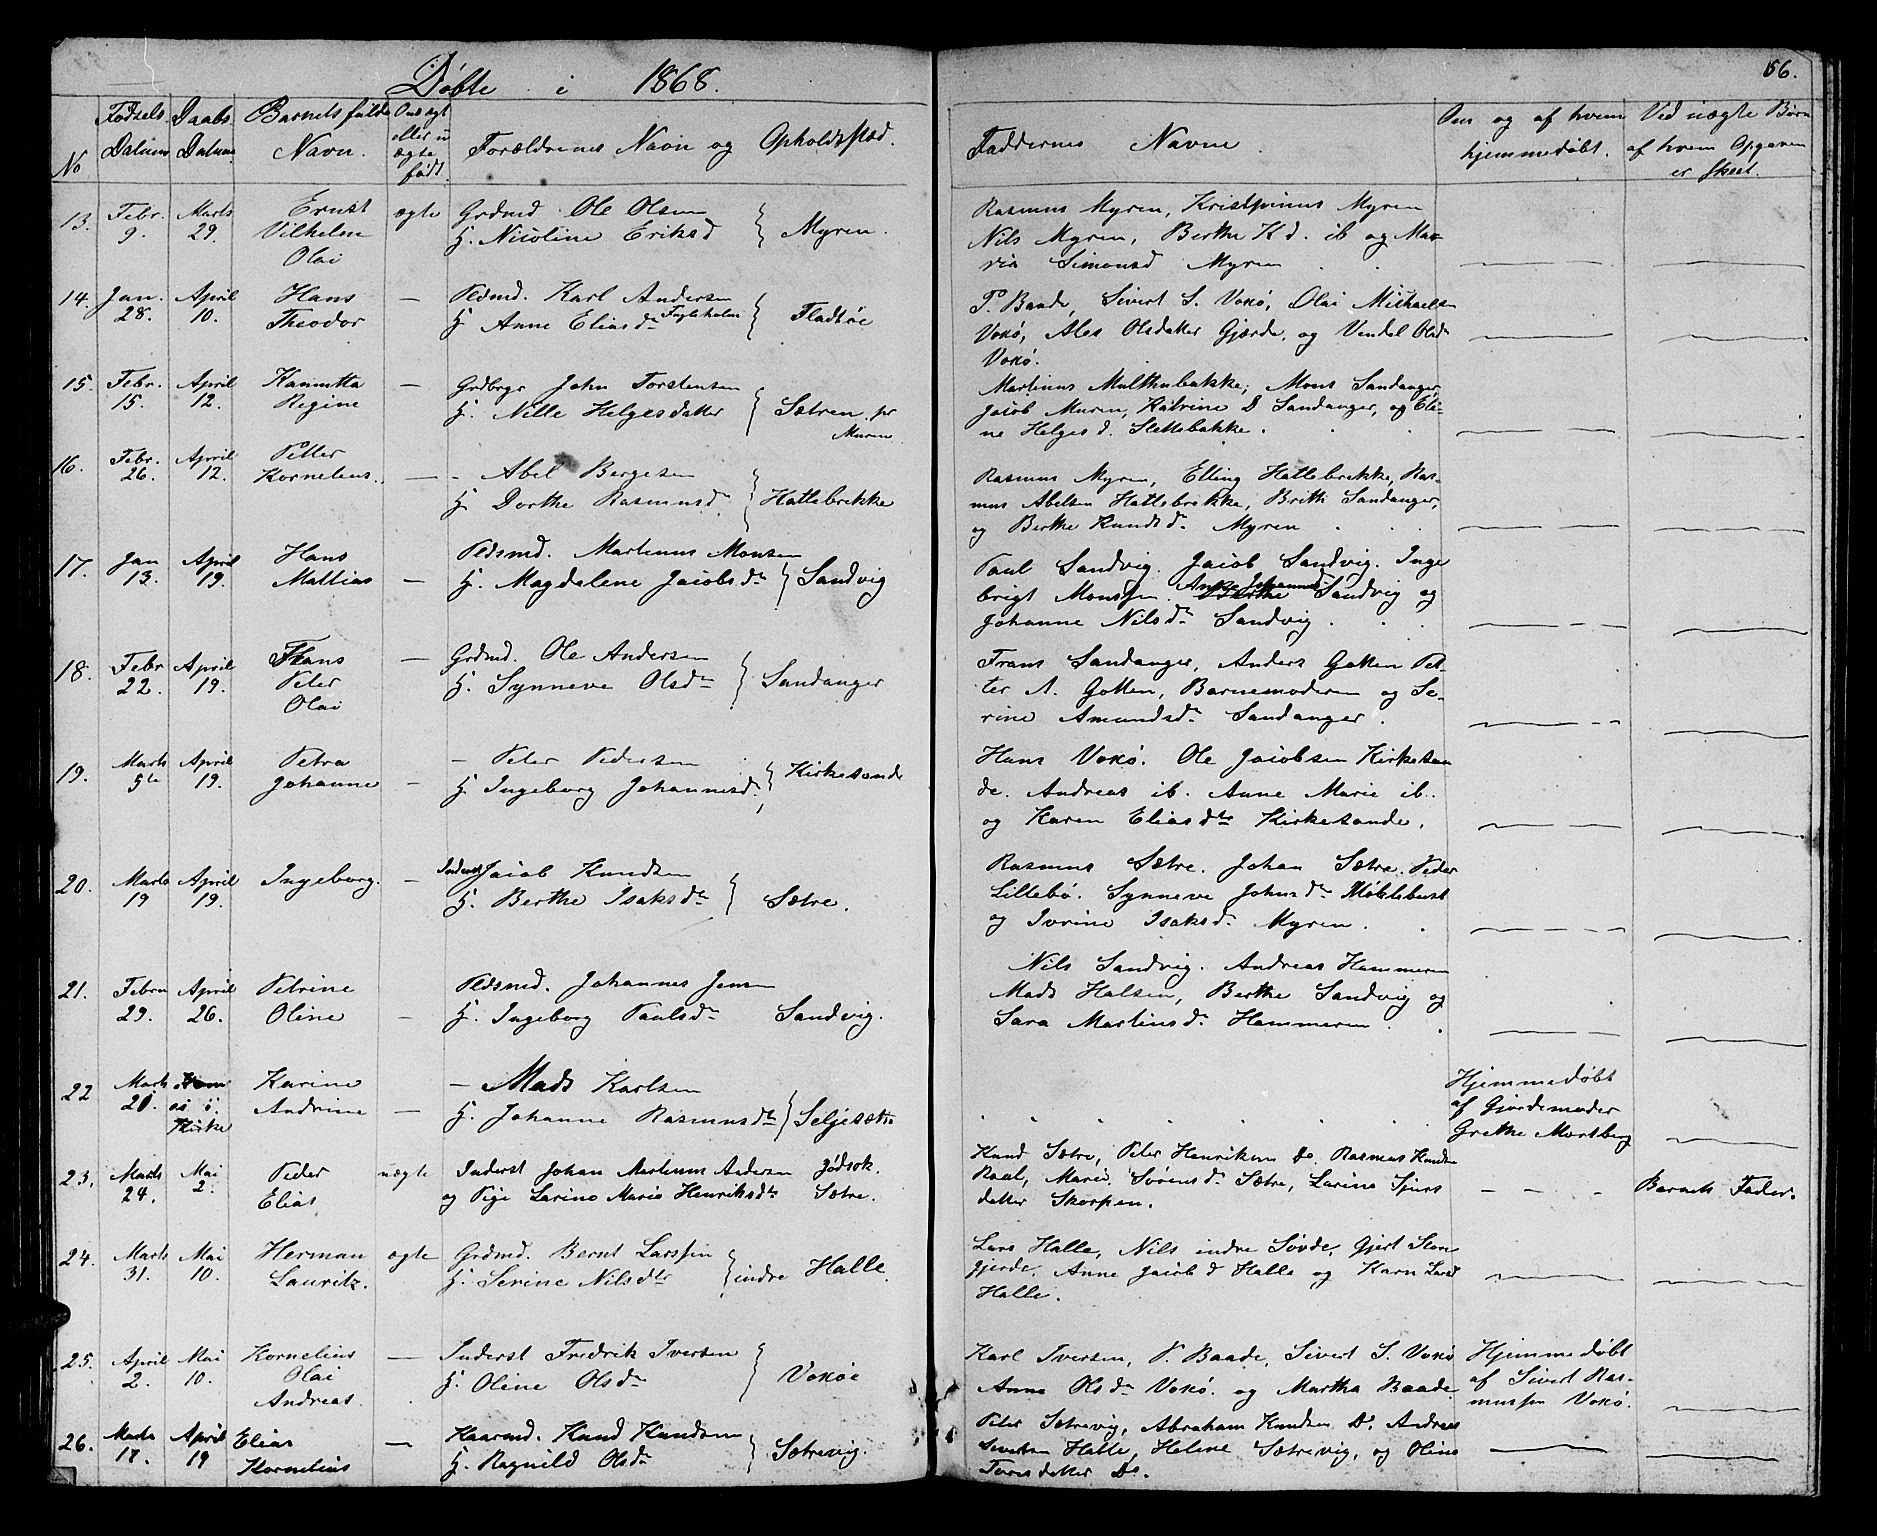 Døbte i 1868.
56.
No
Fødsels Datum
Daabs Datum
Barnets fulde Navn.
Om ægte eller uægte født.
Forældrenes Navn og Opholdssted.
Faddernes Navne.
Om og af hvem hjemmedøbt.
Ved uægte Børn af hvem Opgaven er skeet.
13. Febr. 9. Marts 29. Ernst Vilhelm Olai ægte
Grdmd Ole Olsen
H. Nicoline Eriksd } Myren.
Rasmus Myren, Kristpinus Myren
Nils Myren, Berthe K d. ib og Ma-
ria Simonsd Myren
14. Jan. 28. April 10. Hans Theodor —
Pldmd. Karl Andersen
H. Anne Eliasdr Fugleholm } Fladtøe
P. Baade, Sivert S. Voxø, Olai Michaelsen
Voxø, Ales Olsdatter Gjærde, og Vendel Olsdr
Voxø.
15. Febr. 15. April 12. Kanutta Regine —
Grdbrgr John Torstensen
H. Nille Helgesdatter } Sætren pr Muren.
Martinus Multhubakke, Mons Sandanger,
Jacob Muren, Katrine D Sandanger, og Eli-
ne Helges d. Slettebakke.
16. Febr. 26. April 12. Petter Kornelius. —
- Abel Bergesen
H. Dorthe Rasmusdr } Hattebrekke
Rasmus Myren, Elling Hattebrekke, Ras-
mus Abelsen Hattebrekke, Brith Sandanger,
og Berthe Knudsdr Myren
17. Jan 13. April 19. Hans Mattias —
Pldsmd. Martinus Monsen
H. Magdalene Jacobsdr } Sandvig
Paul Sandvig. Jacob Sandvig. Inge
brigt Monssen. Anne Johannesdr Sandvig og
Johanne Nilsdr Sandvig.
18. Febr 22. April 19. Hans Peter Olai —
Grdmd. Ole Andersen
H. Synneve Olsdr } Sandanger
Frans Sandanger, Anders Gotten Pet-
ter A. Gotten, Barnemoderen og Se-
rine Amundsdr Sandanger.
19. Marts 5te April 19. Petra Johanne —
- Peter Pedersen
H. Ingeborg Johannesdr } Kirkesande
Hans Voxø. Ole Jacobsen Kirkesan
de. Andreas ib. Anne Marie ib.
og Karen Eliasdtr Kirkesande.
20. Marts 19 April 19. Ingeborg. —
Inderst Jacob Knudsen
H. Berthe Isaksdr } Sætre.
Rasmus Sætre. Johan Sætre. Peder
Lillebø. Synneve Johnsdr Møklebust
og Ivrine Isaksdr Myren.
21. Febru 29. April 26. Petrine Oline —
Pldsmd. Johannes Jensen
H. Ingeborg Paulsdr Sandvig.
Nils Sandvig. Andreas Hammeren
Mads Halsen, Berthe Sandvig og
Sara Martinsdr Hammeren
22 Marts 21. i Kirke Karine Andrine —
- Mads Karlsen
H. Johanne Rasmusdtr } Seljesætr
Hjemmedøbt
af Gjordemoder
Grethe Mortberg
23. Marts 24. Mai 2. Peder Elias uægte
Inderst Johan Martinus Andersen Gødsok.
og Pige Larine Marie Henriksdtr Sætre.
Knud Sætre, Peter Henriksen Do. Rasmus Knudsen
Raal, Marie Sørensdr Sætre, Larine Sjurs
datter Skorpen.
Barnets Fader.
24. Marts 31. Mai 10. Herman Lauritz. ægte
Grdmd. Bernt Larssen
H. Serine Nilsdtr } indre Halle
Lars Halle, Nils indre Søvde, Gjert Stor
gjerde, Anne Jacob d Halle og Karn Larsd
Halle.
25. April 2. Mai 10. Kornelius Olai Andreas. —
Inderst Fredrik Iversen
H. Oline Olsdr } Voxøe
Karl Iversen, P. Baade, Sivert S. Voxø
Anne Olsdr Voxø. og Martha Baade
Hjemmedøbt
af Sivert Ras-
mussen Voxø.
26. Marts 17. April 19 Elias Kornelius —
Haarmd. Knud Knudsen
H. Ragnild Olsdr } Sætrevig.
Peter Sætrevig, Abraham Knudsen Do. Andreas
Sivertsen Halle, Helene Sætrevig, og Oline
Toresdatter Do.